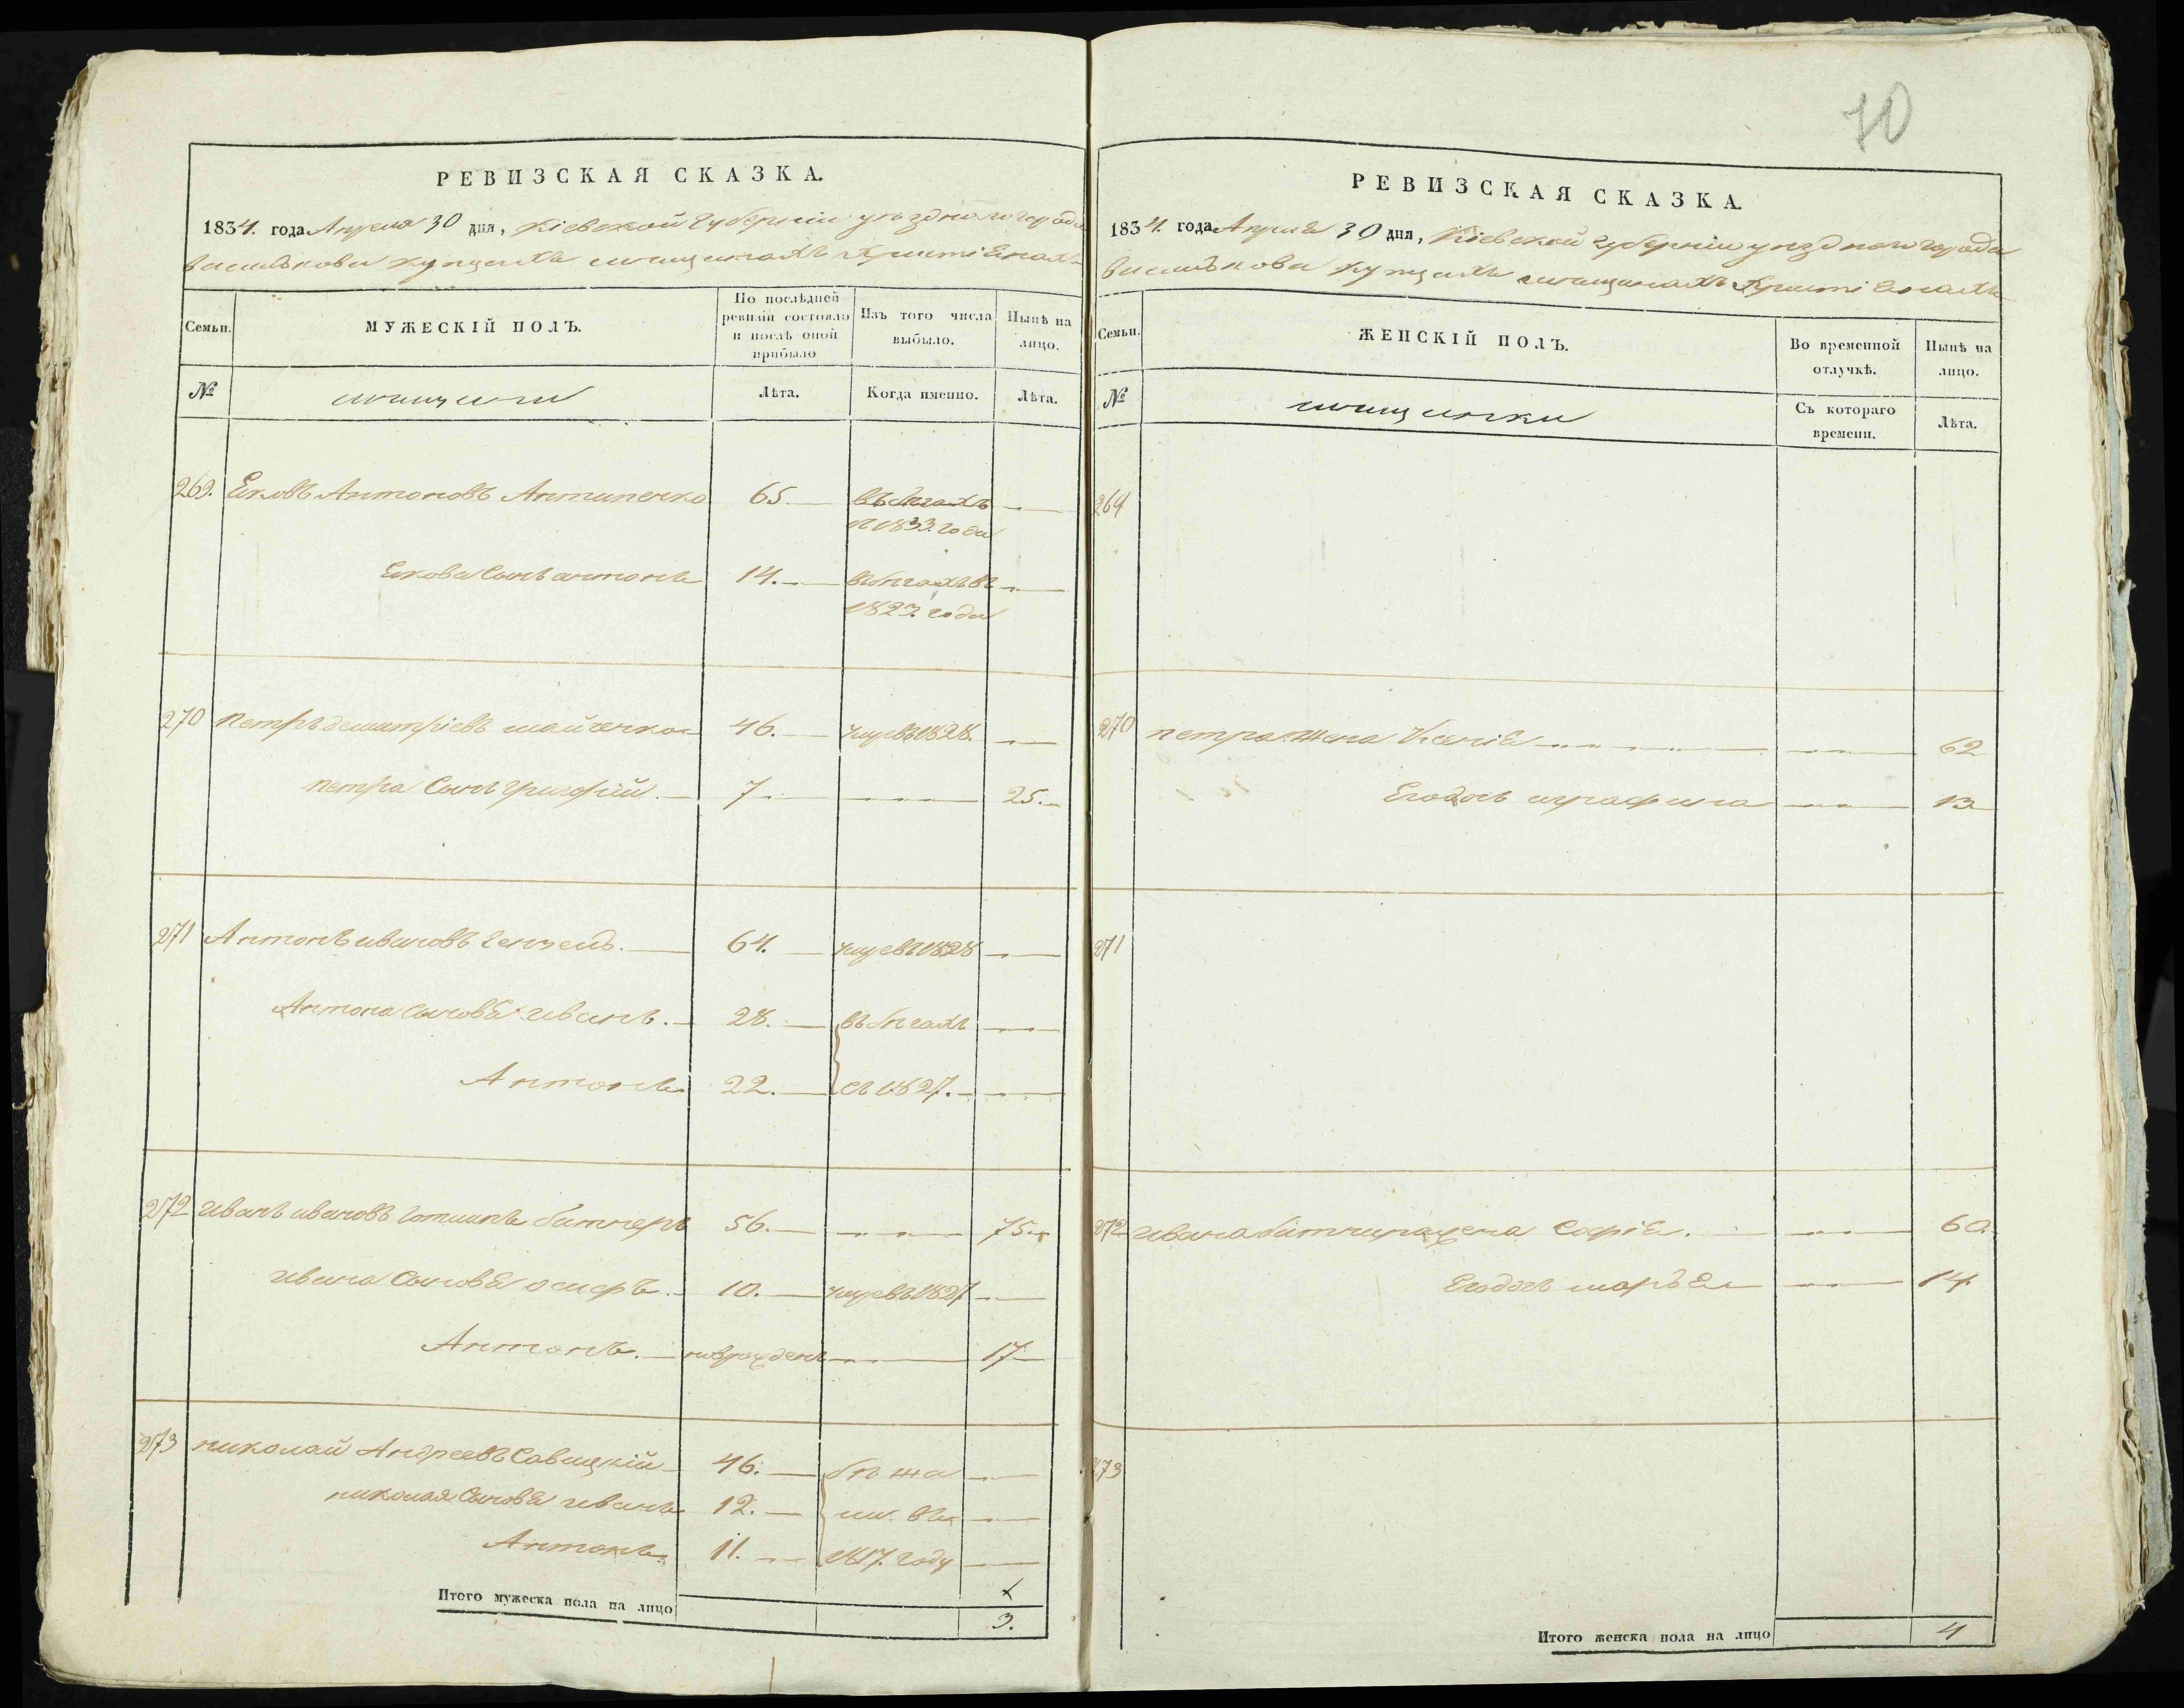 РЕВИЗСКАЯ СКАЗКА.
1834. года Апреля 30 дня, Кіевской губерніи уезднаго города
василькова купцахъ мещанахъ христіянахъ
Семьи. МУЖЕСКІЙ ПОЛЪ. По послѣдней ревизіи состояло и послѣ оной прибыло Изъ того числа выбыло. Нынѣ на лицо.
№ мещане Лѣта. Когда именно. Лѣта.
269. Яковъ Антоновъ Антипенко 65. въ бегахъ
1833. года
Якова Сынъ антонъ 14. въ бегахъ въ
1823. года
270 петръ демитріевъ 46. умре въ 1828.
петра Сынъ григорій 7 25.
271 Антонъ ивановъ 64. умре въ 1828
Антона Сыновя иванъ. 28. въ бегахъ
Антонъ 22. съ 1827.
272 иванъ ивановъ 56. 75
ивана Сыновя осифъ 10. умре въ 1827
Антонъ. новрожденъ 17
273 николай Андреевъ Савицкій 46. бежа
николая Сыновя иванъ 12. ли въ
Антонъ 11. 1817. году
Итого мужеска пола на лицо 3.
70
РЕВИЗСКАЯ СКАЗКА.
1834. года Апреля 30 дня, Кіевской губерніи уезднаго города
василькова купцахъ мещанахъ христіянахъ
Семьи. ЖЕНСКІЙ ПОЛЪ. Во временной отлучкѣ. Нынѣ на лицо.
№ мещанки Съ котораго времени. Лѣта.
269
270 петра жена Ксенія 62
Егодочь аграфина 13
271
272 ивана жена Софія. 60.
Егодочь 14.
273
Итого женска пола на лицо 4